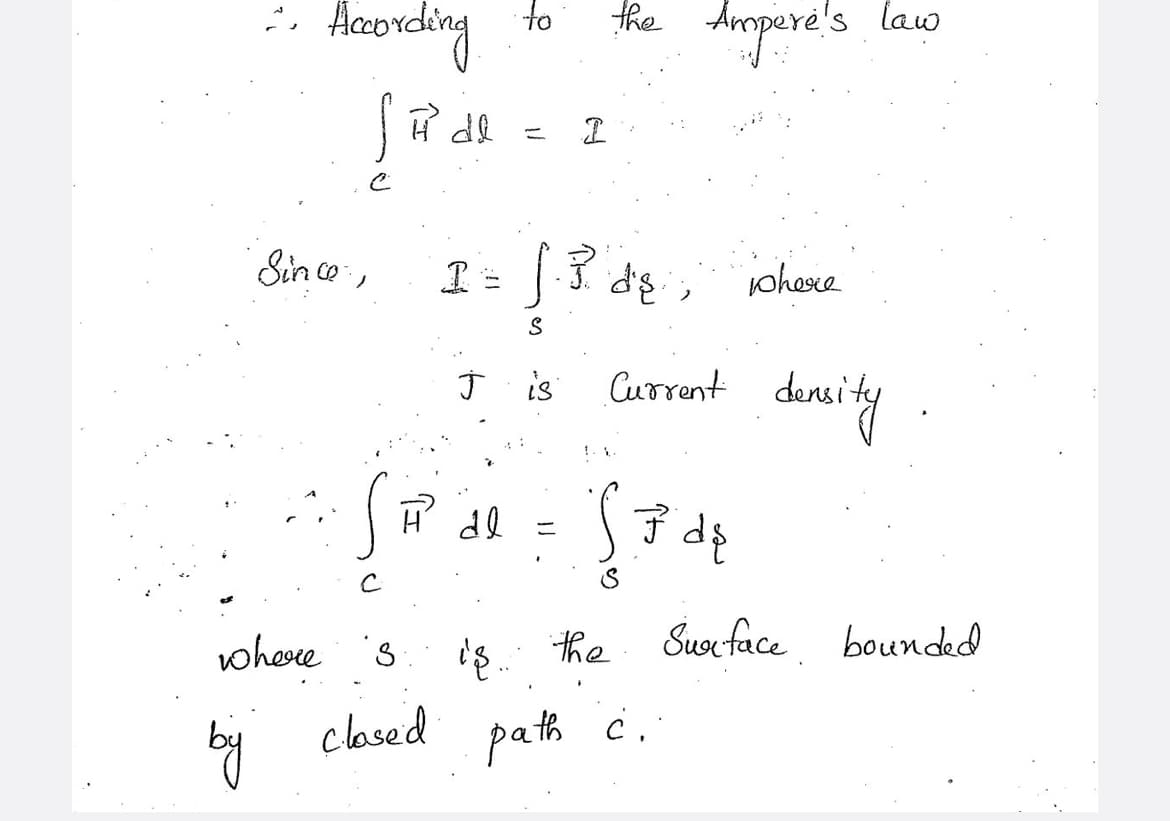 ∴ According to the Ampere's law
∫_C H⃗ dl = I
Since, I = ∫_S J⃗ ds, where
J is Current density.
∴ ∫_C H⃗ dl = ∫_S J⃗ ds
where S is the Surface bounded
by closed path c.